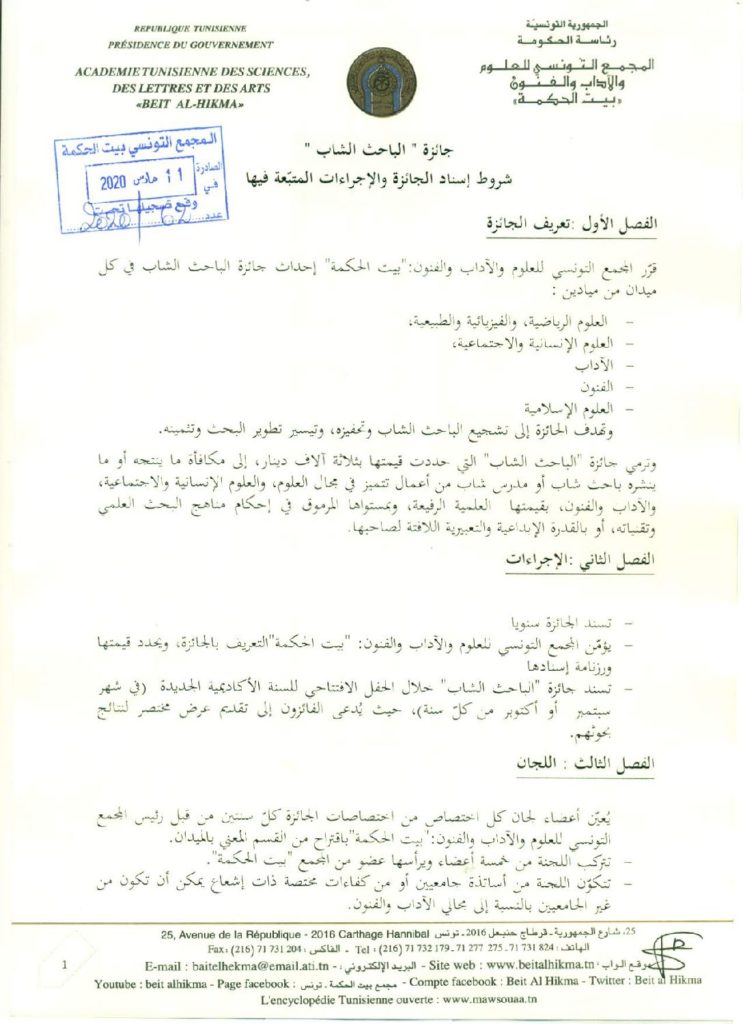 REPUBLIQUE TUNISIENNE
PRÉSIDENCE DU GOUVERNEMENT
ACADEMIE TUNISIENNE DES SCIENCES,
DES LETTRES ET DES ARTS
«BEIT AL-HIKMA»
الجمهورية التونسية
رئاسة الحكومة
المجمع التونسي للعلوم
والآداب والفنون
«بيت الحكمة»
المجمع التونسي بيت الحكمة
الصادرة في
11 مارس 2020
وقع تسجيلها تحت
عدد
جائزة " الباحث الشاب "
شروط إسناد الجائزة والإجراءات المتبّعة فيها
الفصل الأول :تعريف الجائزة
قرّر المجمع التونسي للعلوم والآداب والفنون:"بيت الحكمة" إحداث جائزة الباحث الشاب في كل
ميدان من ميادين :
- العلوم الرياضية، والفيزيائية والطبيعية،
- العلوم الإنسانية والاجتماعية،
- الآداب
- الفنون
- العلوم الإسلامية
وتهدف الجائزة إلى تشجيع الباحث الشاب وتحفيزه، وتيسير تطوير البحث وتثمينه.
وترمي جائزة "الباحث الشاب" التي حددت قيمتها بثلاثة آلاف دينار، إلى مكافأة ما ينتجه أو ما
ينشره باحث شاب أو مدرس شاب من أعمال تتميز في مجال العلوم، والعلوم الإنسانية والاجتماعية،
والآداب والفنون، بقيمتها العلمية الرفيعة، وبمستواها المرموق في إحكام مناهج البحث العلمي
وتقنياته، أو بالقدرة الإبداعية والتعبيرية اللافتة لصاحبها.
الفصل الثاني :الإجراءات
- تسند الجائزة سنويا
- يؤمّن المجمع التونسي للعلوم والآداب والفنون: "بيت الحكمة"التعريف بالجائزة، ويحدد قيمتها
ورزنامة إسنادها
- تسند جائزة "الباحث الشاب" خلال الحفل الافتتاحي للسنة الأكاديمية الجديدة (في شهر
سبتمبر أو أكتوبر من كلّ سنة)، حيث يُدعى الفائزون إلى تقديم عرض مختصر لنتائج
بحوثهم.
الفصل الثالث : اللجان
يُعيّن أعضاء لجان كل اختصاص من اختصاصات الجائزة كلّ سنتين من قبل رئيس المجمع
التونسي للعلوم والآداب والفنون:"بيت الحكمة"باقتراح من القسم المعني بالميدان.
- تتركب اللجنة من خمسة أعضاء ويرأسها عضو من المجمع "بيت الحكمة".
- تتكوّن اللجنة من أساتذة جامعيين أو من كفاءات مختصة ذات إشعاع يمكن أن تكون من
غير الجامعيين بالنسبة إلى مجالي الآداب والفنون.
25, Avenue de la République - 2016 Carthage Hannibal 25، شارع الجمهورية ـ قرطاج حنبعل 2016ـ تونس
Fax: (216) 71 731 204 : الفاكس - Tel : (216) 71 732 179 -71 277 275 -71 731 824 : الهاتف
E-mail : baitelhekma@email.ati.tn - : البريد الإلكتروني - Site web : www.beitalhikma.tn : موقع الواب
Youtube : beit alhikma - Page facebook : مجمع بيت الحكمة . تونس - Compte facebook : Beit Al Hikma - Twitter : Beit al Hikma
L'encyclopédie Tunisienne ouverte : www.mawsouaa.tn
1